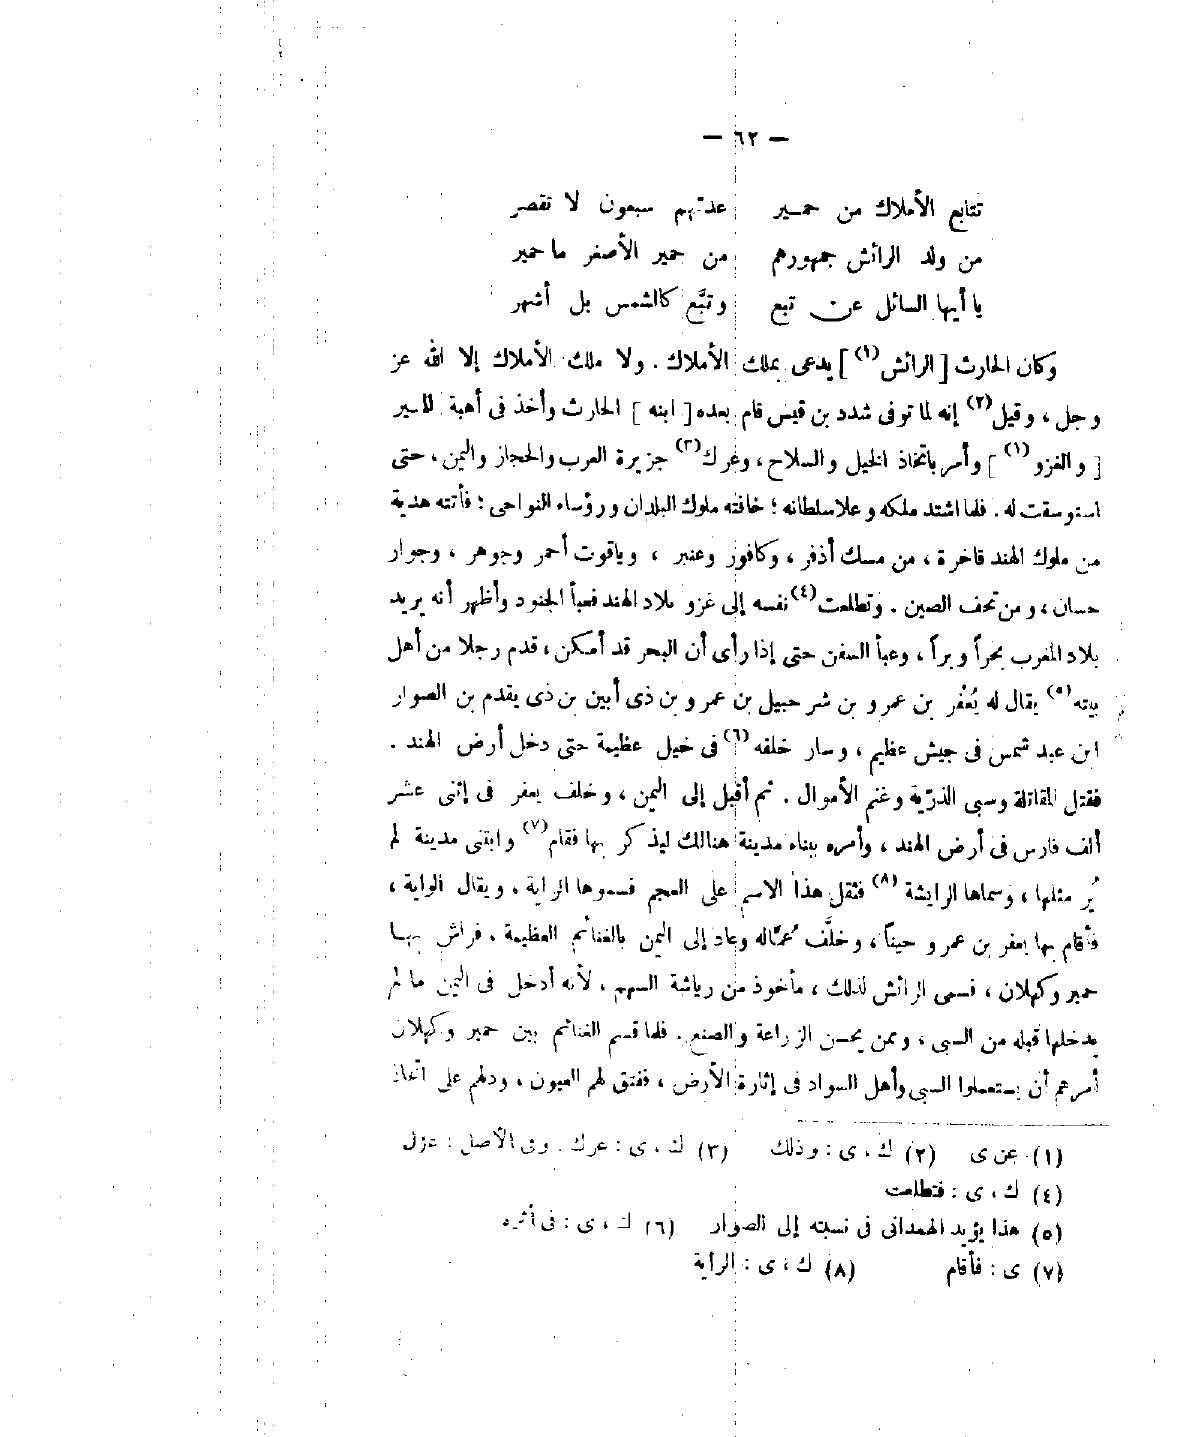 — ٦٢ —
تتابع الأملاك من حمـير عدتهم سبعون لا تقصر
من ولد الرائش جمهورهم من حمير الأصغر ما حمير
يا أيها السائل عن تبع وتبَّع كالشمس بل أشهر
وكان الحارث [ الرائش (١) ] يدعى بملك الأملاك . ولا ملك الأملاك إلا الله عز
وجل ، وقيل (٢) إنه لما توفى شدد بن قيس قام بعده [ ابنه ] الحارث وأخذ فى أهبة للسير
[ والغزو (١) ] وأمر باتخاذ الخيل والسلاح ، وعرك (٣) جزيرة العرب والحجاز واليمن ، حتى
استوسقت له . فلما اشتد ملكه وعلا سلطانه ؛ خافته ملوك البلدان ورؤساء النواحى ؛ فأتته هدية
من ملوك الهند فاخرة ، من مسك أذفر ، وكافور وعنبر ، وياقوت أحمر وجوهر ، وجوار
حسان ، ومن تحف الصين . وتطلعت (٤) نفسه إلى غزو بلاد الهند فعبأ الجنود وأظهر أنه يريد
بلاد المغرب بحراً وبراً ، وعبأ السفن حتى إذا رأى أن البحر قد أمكن ، قدم رجلا من أهل
بيته (٥) يقال له يُعْفُر بن عمرو بن شرحبيل بن عمرو بن ذى أبين بن ذى يقدم بن الصوار
ابن عبد شمس فى جيش عظيم ، وسار خلفه (٦) فى خيل عظيمة حتى دخل أرض الهند .
فقتل المقاتلة وسبى الذرّية وغنم الأموال . ثم أقبل إلى اليمن ، وخلف يعفر فى إثنى عشر
ألف فارس فى أرض الهند ، وأمره ببناء مدينة هنالك ليذكر بها فقام (٧) وابتنى مدينة لم
يُر مثلها ، وسماها الرايشة (٨) فثقل هذا الاسم على العجم فسموها الراية ، ويقال الواية ،
فأقام بها يعفر بن عمرو حيناً ، وخلَّف عُمَّاله وعاد إلى اليمن بالغنائم العظيمة ، فراش بهـا
حمير وكهلان ، فسمى الرائش لذلك ، مأخوذ من رياشة السهم ، لأنه أدخل فى اليمن ما لم
يدخلها قبله من السبى ، وممن يحسن الزراعة والصنع . فلما قسم الغنائم بين حمير وكهلان
أمرهم أن يستعملوا السبى وأهل السواد فى إثارة الأرض ، ففتق لهم العيون ، ودلهم على اتخاذ
(١) عن ى (٢) ك ، ى : وذلك (٣) ك ، ى : عرك . وفى الأصل : عزل
(٤) ك ، ى : فتطلعت
(٥) هذا يؤيد الهمدانى فى نسبته إلى الصوار (٦) ك ، ى : فى أثره
(٧) ى : فأقام (٨) ك ، ى : الراية